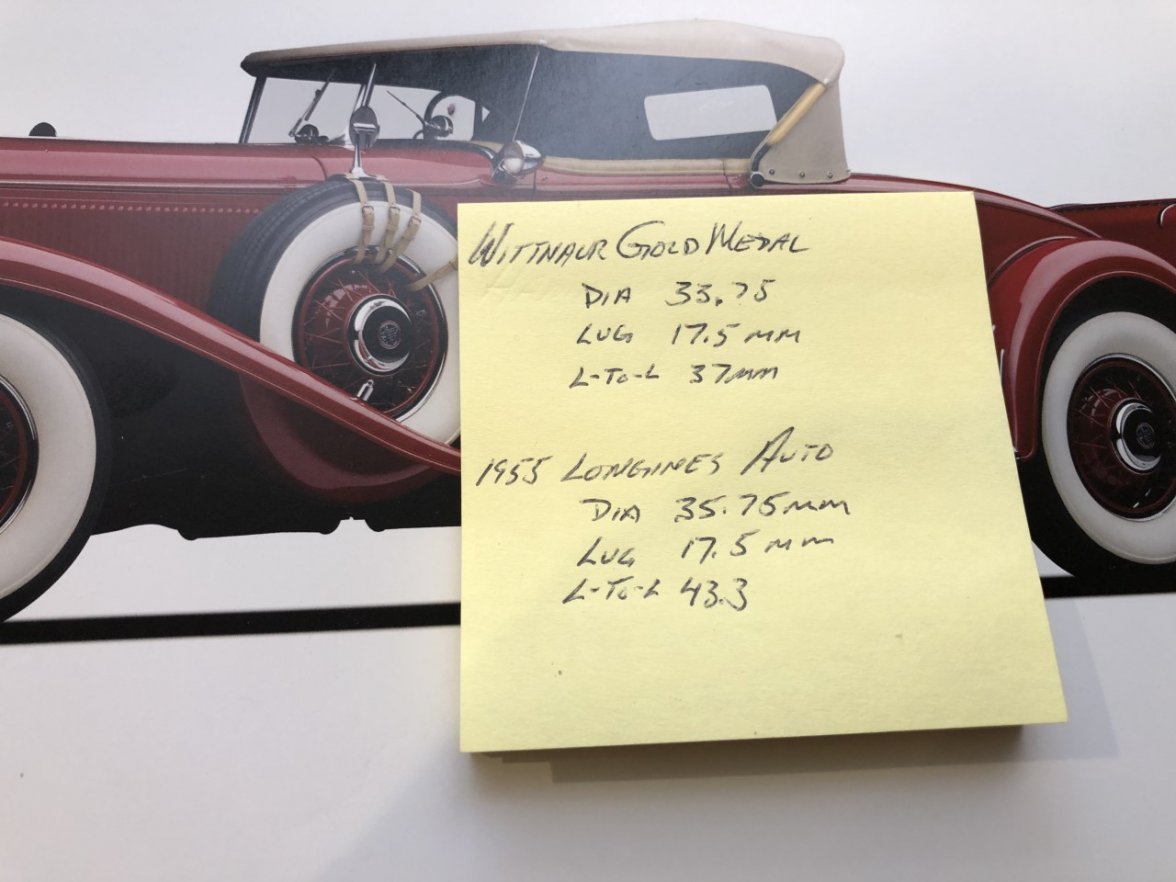 WITTNAUR GOLD MEDAL
DIA 33.75
LUG 17.5 MM
L-TO-L 37MM
1955 LONGINES AUTO
DIA 35.75MM
LUG 17.5 MM
L-TO-L 43.3